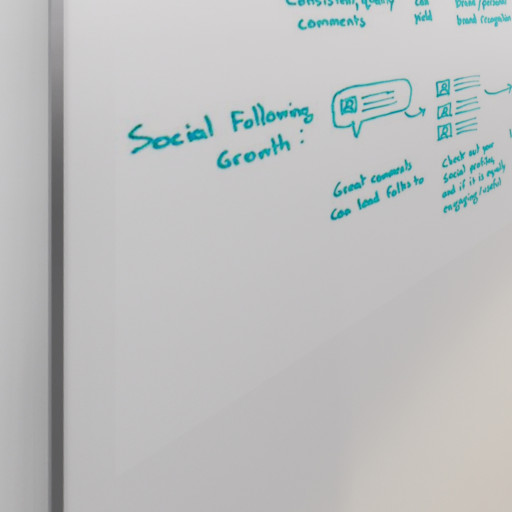 Consistent, quality
comments
can
yield
brand/personal
brand recognition
Social Following
Growth:
Great comments
can lead folks to
Check out your
social profiles,
and if it is equally
engaging/useful